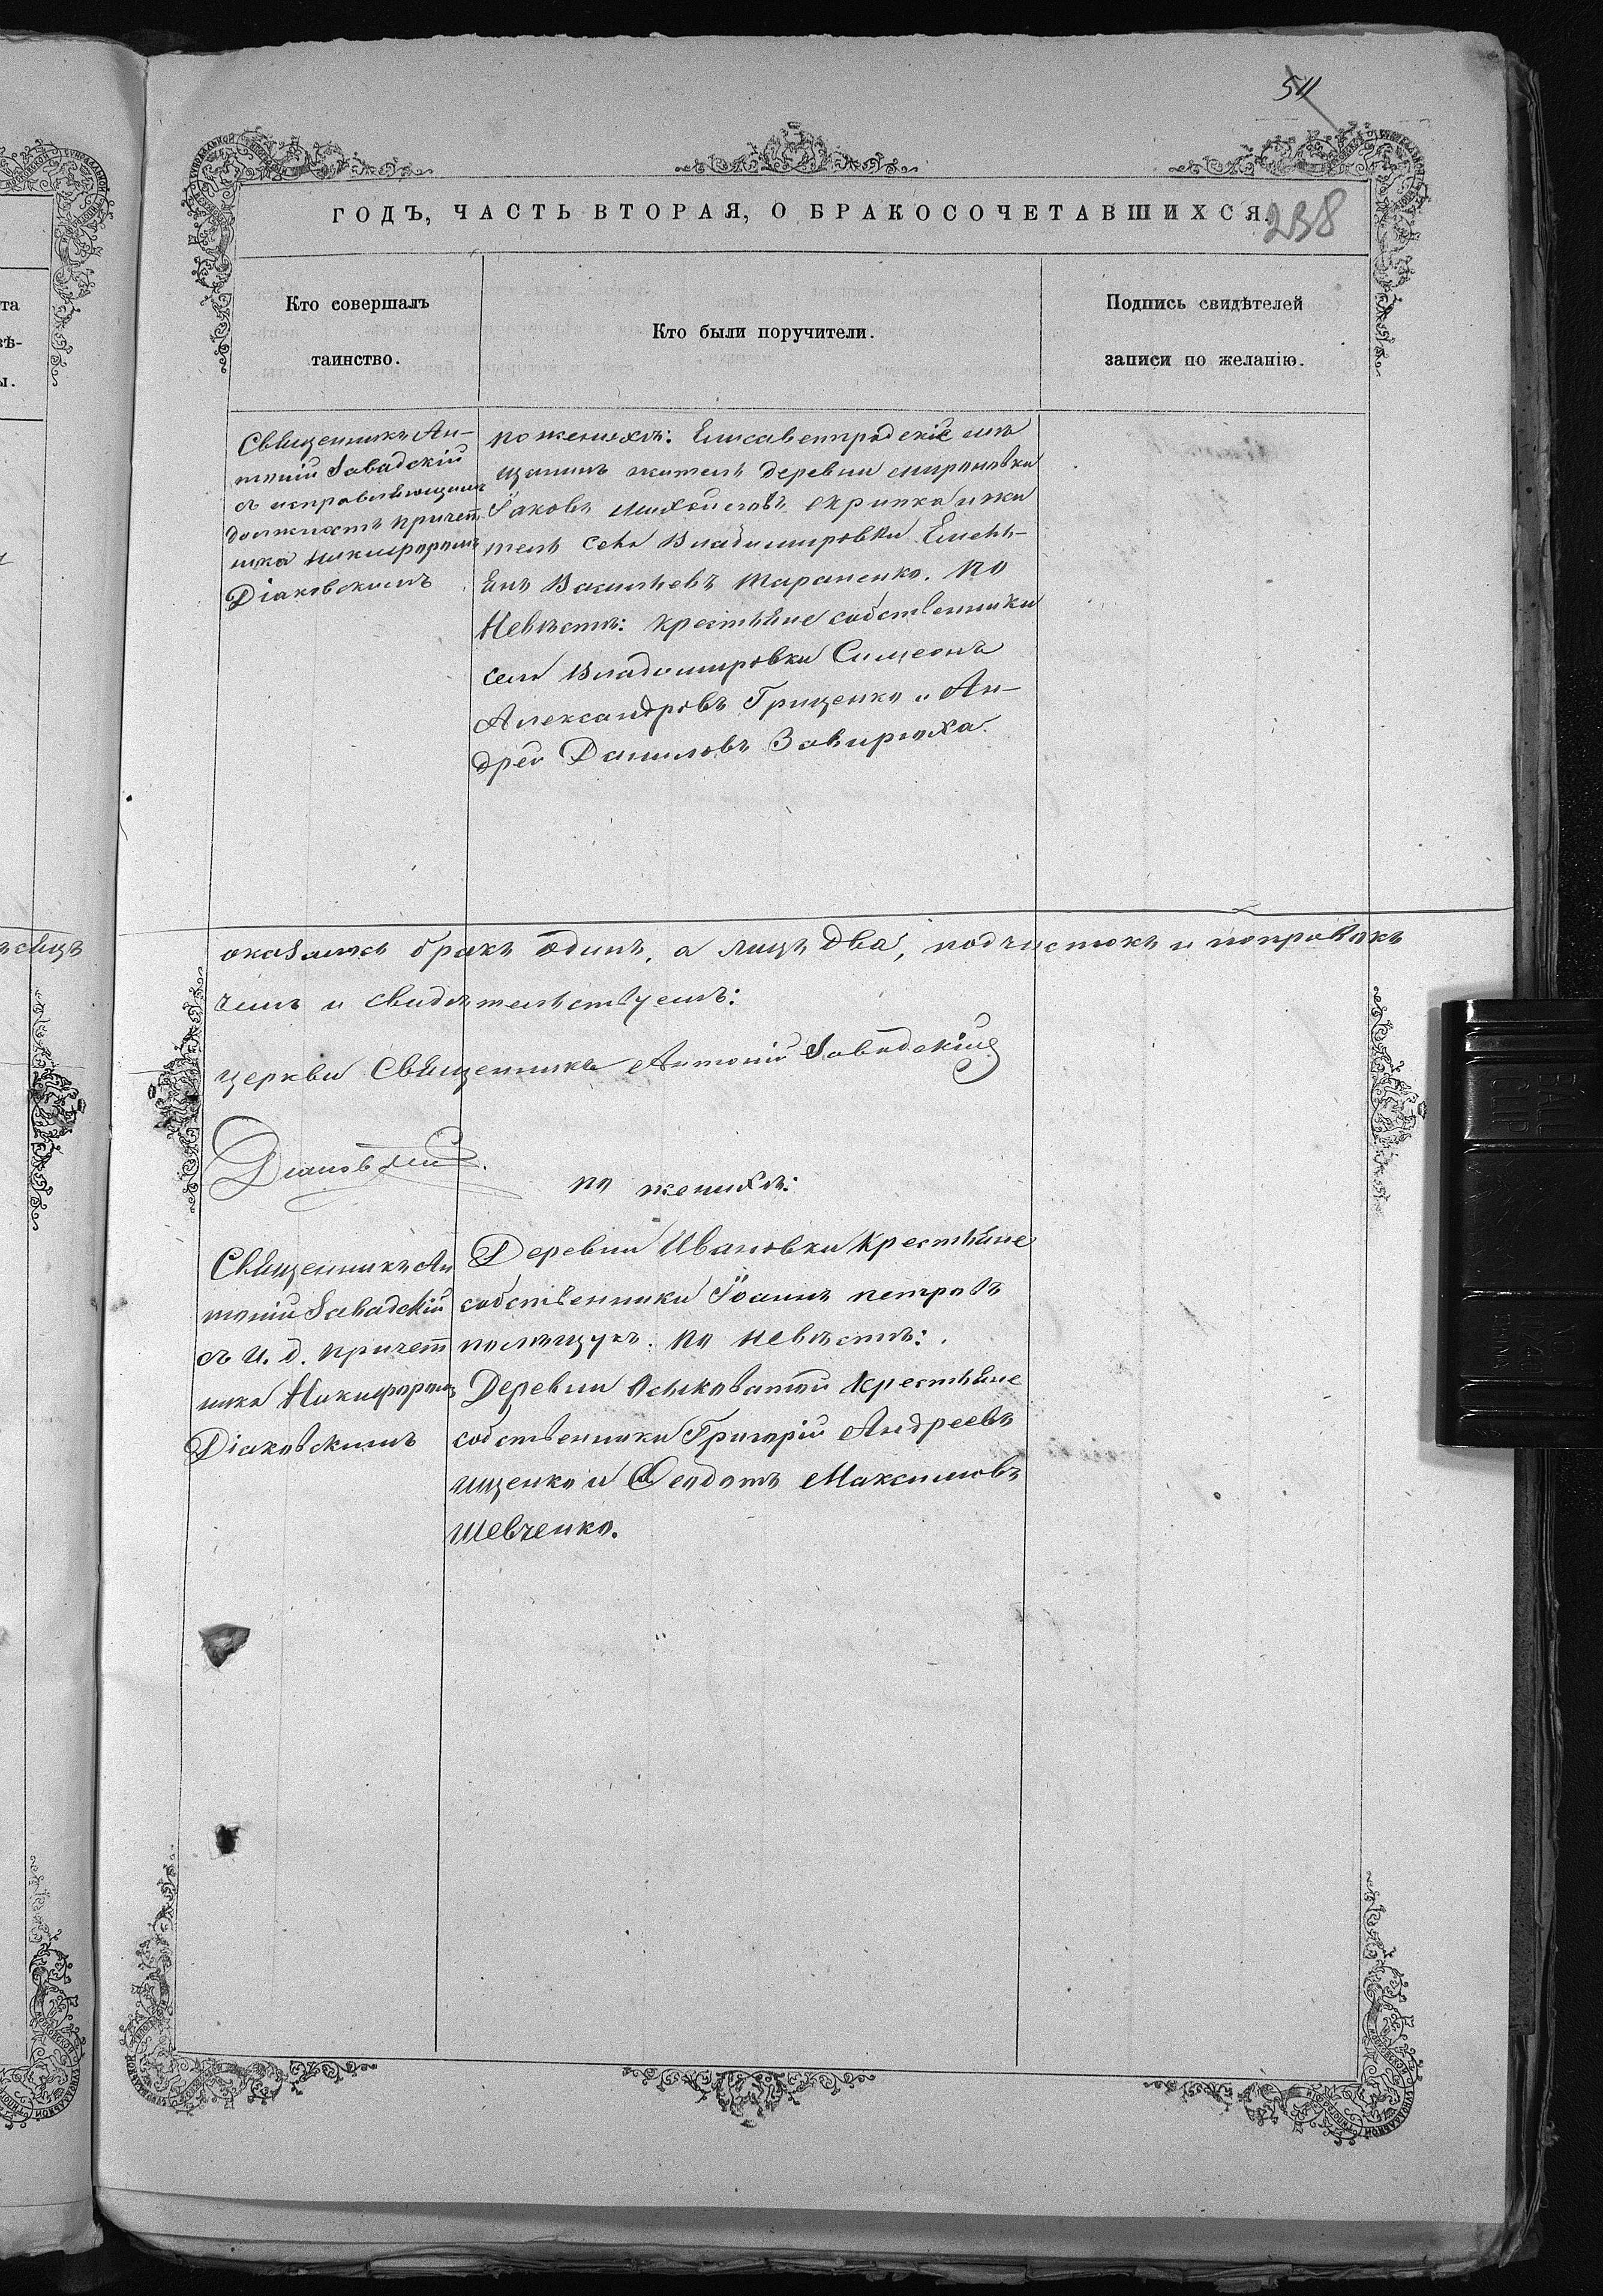 511
ГОДЪ, ЧАСТЬ ВТОРАЯ, О БРАКОСОЧЕТАВШИХСЯ.
238
Кто совершалъ
таинство.
Кто были поручители.
Подпись свидѣтелей
записи по желанію.
Священникъ Ан-
тоній Завадскій
съ исправляющимъ
должность причет
ника Никифоромъ
Діаковскимъ
по женихѣ: Елисаветградскіе мѣ
щанинъ житель деревни Мироновки
Іаковъ Михайловъ Скрипка и жи
тель села Владимировки Емель-
янъ Васильевъ Тараненко. По
невѣстѣ: крестьяне собственники
села Владимировки Симеонъ
Александровъ Гриценко и Ан-
дрей Даниловъ Завирюха.
мѣсяцъ
оказалось бракъ одинъ, а лицъ два, подчистокъ и поправокъ
чимъ и свидѣтельствуемъ:
церкви Священникъ Антоній Завадскій
Діаковскій.
по женихѣ:
Священникъ Ан
тоній Завадскій
съ и. д. причет
ника Никифоромъ
Діаковскимъ
Деревни Ивановки крестьяне
собственники Іоаннъ Петровъ
Полищукъ. По невѣстѣ:
Деревни крестьяне
собственники Григорій Андреевъ
Ищенко и Феодотъ Максимовъ
Шевченко.